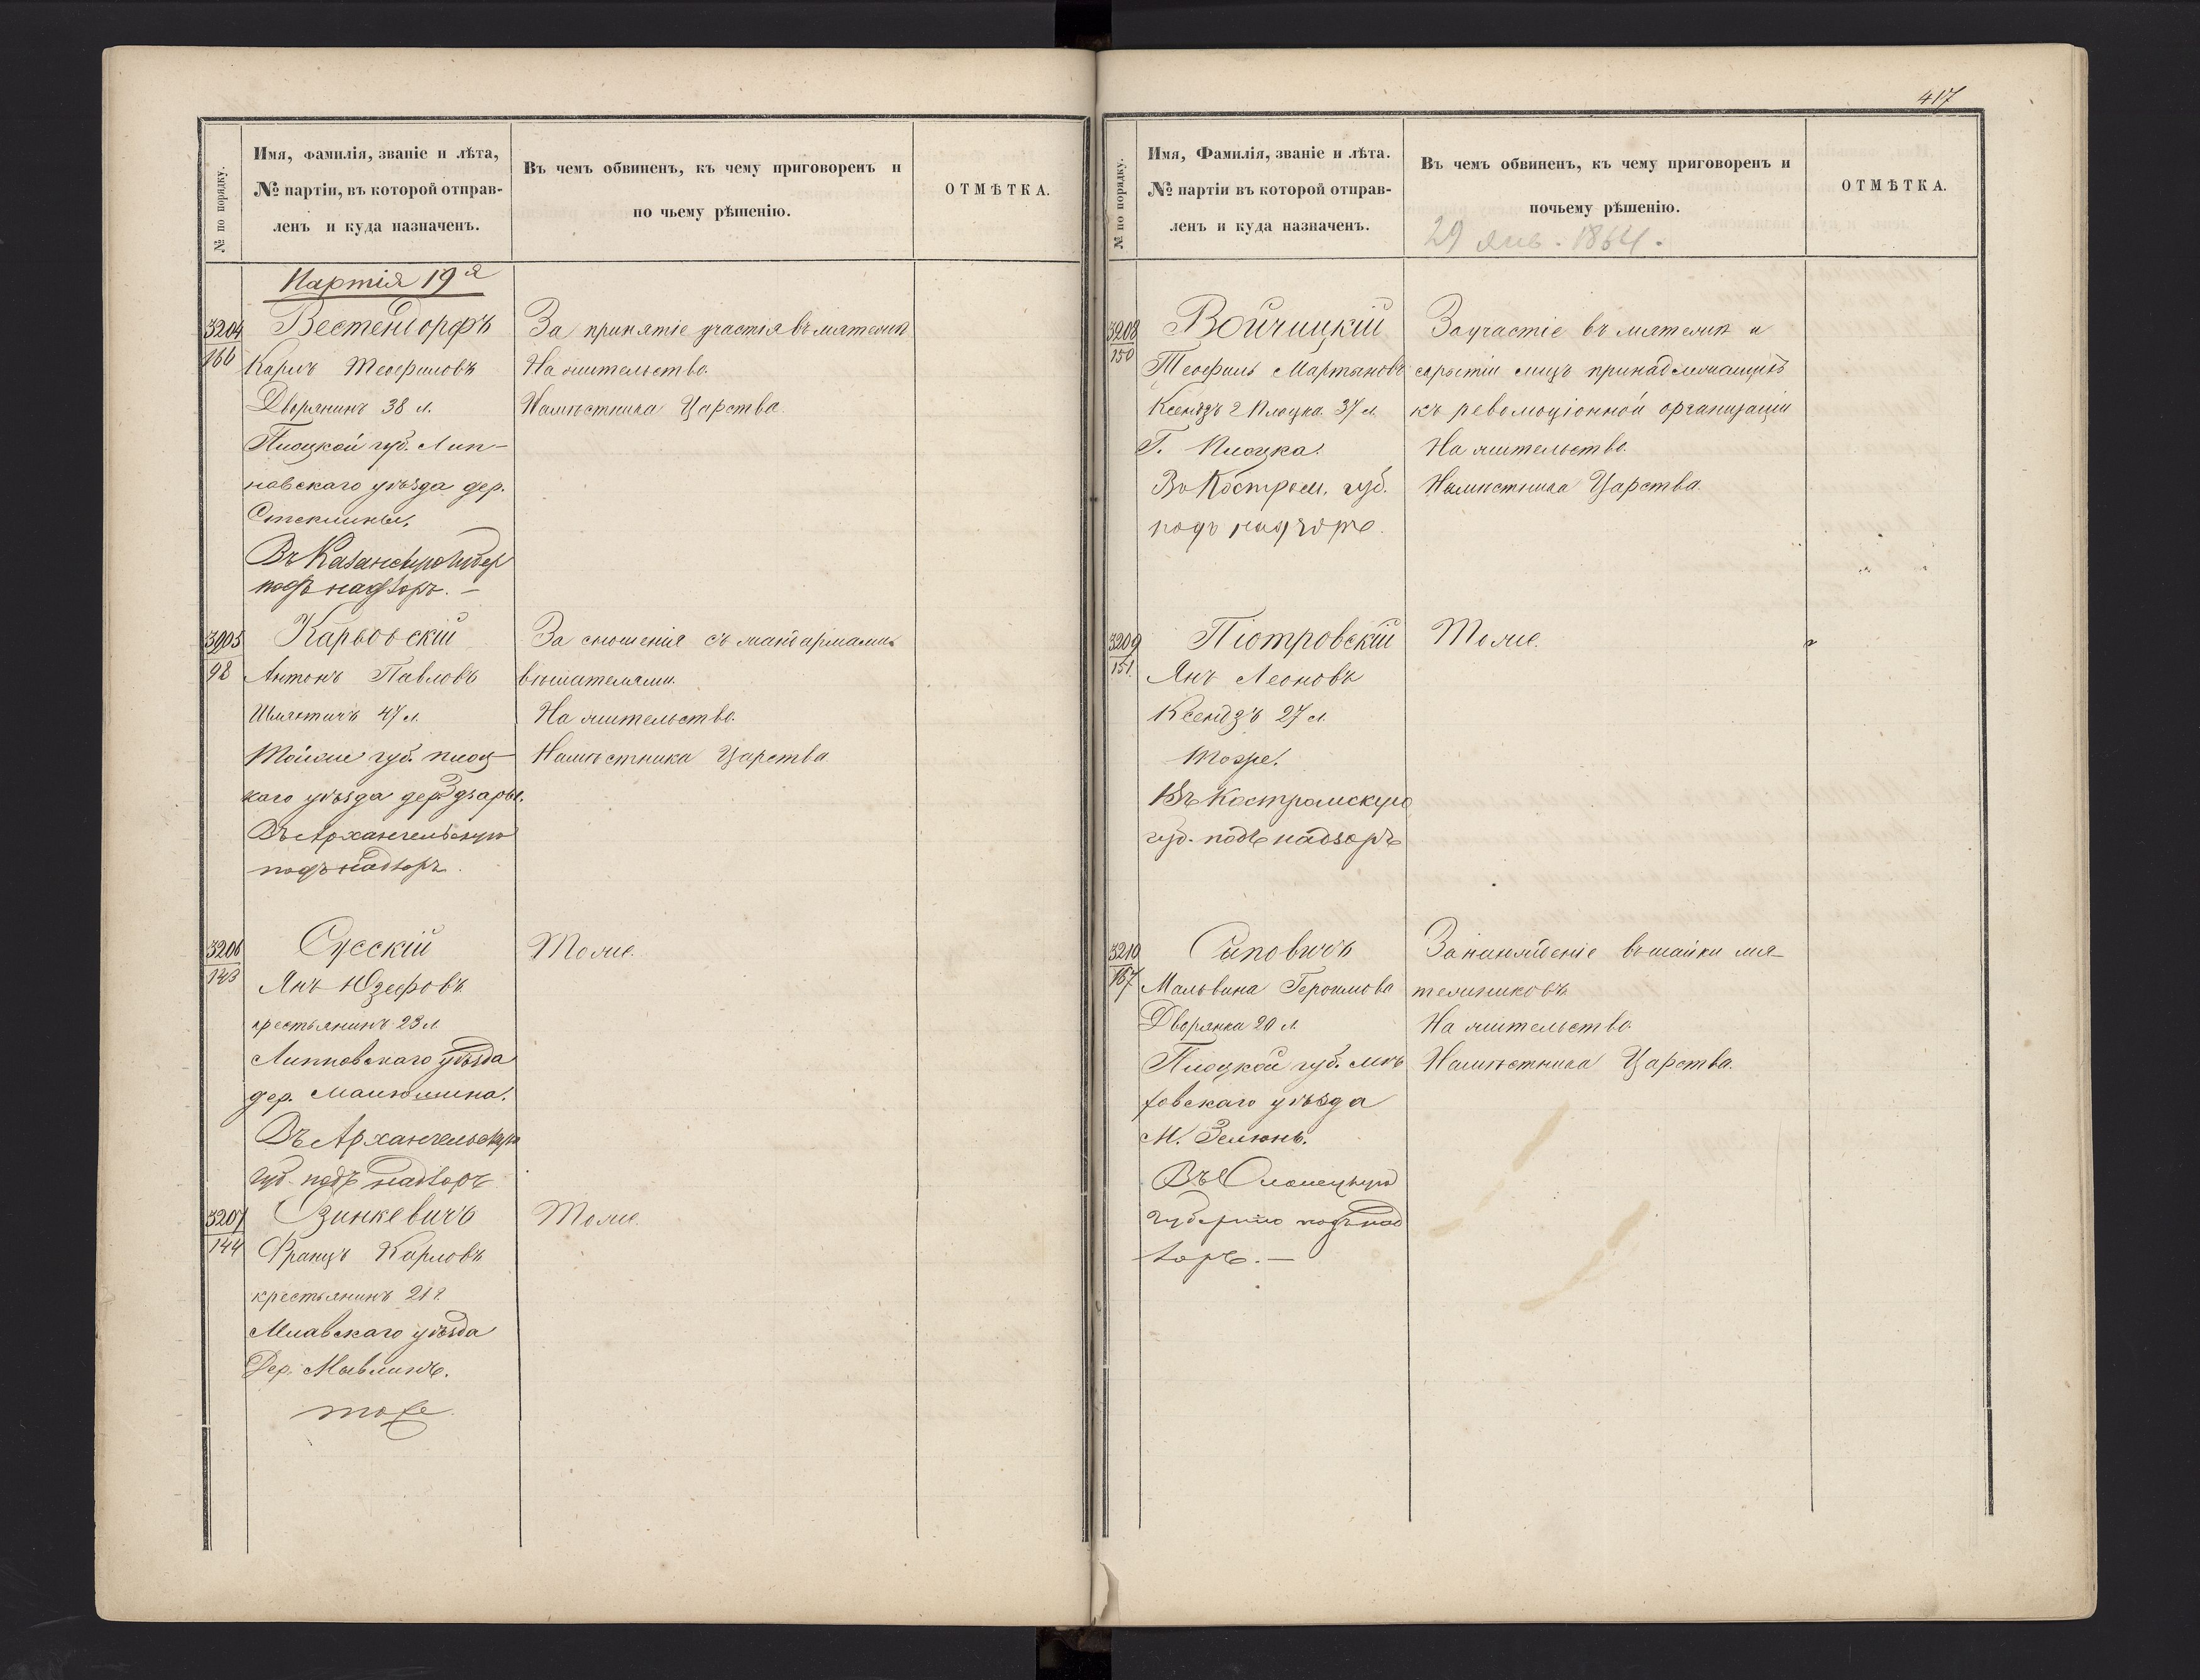 417
№ по порядку.
Имя, фамилія, званіе и лѣта,
№ партіи, въ которой отправ-
ленъ и куда назначенъ.
Въ чемъ обвиненъ, къ чему приговоренъ и
по чьему рѣшенію.
ОТМѢТКА.
Партія 19я
3204
166
Вестендорфъ
Карлъ Теофиловъ
Дворянинъ 38 л.
Плоцкой губ. Лип-
новскаго уѣзда дер.
Стеклины,
Въ Казанскую губер
подъ надзоръ. —
За принятіе участія въ мятежѣ
На жительство.
Намѣстника Царства.
3205
98
Карвовскій
Антонъ Павловъ
Шляхтичъ 47 л.
Тойже губ. плоц-
каго уѣзда дер.
Въ Архангельскую
подъ надзоръ.
За сношенія съ жандармами
вѣшателями.
На жительство.
Намѣстника Царства
3206
143
Сусскій
Янъ Юзефовъ
крестьянинъ 23 л.
Липновскаго уѣзда
дер.
Въ Архангельскую
губ. подъ надзоръ
Тоже.
3207
144
Зинкевичъ
Францъ Карловъ
крестьянинъ 21 г.
Млавскаго уѣзда
Дер.
тоже.
Тоже.
№ по порядку.
Имя, Фамилія, званіе и лѣта.
№ партіи въ которой отправ-
ленъ и куда назначенъ.
Въ чемъ обвиненъ, къ чему приговоренъ и
почьему рѣшенію.
29 янв. 1864.
ОТМѢТКА.
3208
150
Войчицкій
Теофиль Мартыновъ
Ксендзъ г Плоцка. 37 л.
Г. Плоцка.
Въ Костром. губ.
подъ надзоръ.
За участіе въ мятежѣ и
скрытіи лицъ принадлежащихъ
къ революціонной организаціи
На жительство.
Намѣстника Царства.
3209
151.
Піотровскій
Янъ Леоновъ
Ксендзъ 27 л.
тоже.
Въ Костромскую
губ. подъ надзоръ
Тоже.
3210
167
Сиповичъ
Мальвина Героимова
Дворянка 20 л.
Плоцкой губ. Мла
вскаго уѣзда
М. Зелюнь.
Въ Олонецкую
губернію подъ над
зоръ. —
За нахожденіе въ шайки мя-
тежниковъ
На жительство.
Намѣстника Царства.